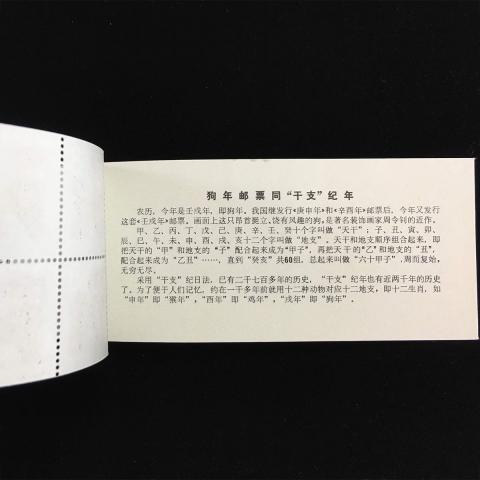 狗年邮票同“干支”纪年
农历，今年是壬戌年，即狗年。我国继发行«庚申年»和«辛酉年»邮票后，今年又发行
这套«壬戌年»邮票。画面上这只昂首挺立、饶有风趣的狗，是著名装饰画家周令钊的近作。
甲、乙、丙、丁、戊、己、庚、辛、壬、癸十个字叫做“天干”；子、丑、寅、卯、
辰、巳、午、未、申、酉、戌、亥十二个字叫做“地支”。天干和地支顺序组合起来，即
把天干的“甲”和地支的“子”配合起来成为“甲子”，再把天干的“乙”和地支的“丑”，
配合起来成为“乙丑”……，直到“癸亥”共60组，总起来叫做“六十甲子”，周而复始，
无穷无尽。
采用“干支”纪日法，已有二千七百多年的历史，“干支”纪年也有近两千年的历史
了。为了便于人们记忆，约在一千多年前就用十二种动物对应十二地支，即十二生肖，如
“申年”即“猴年”，“酉年”即“鸡年”，“戌年”即“狗年”。